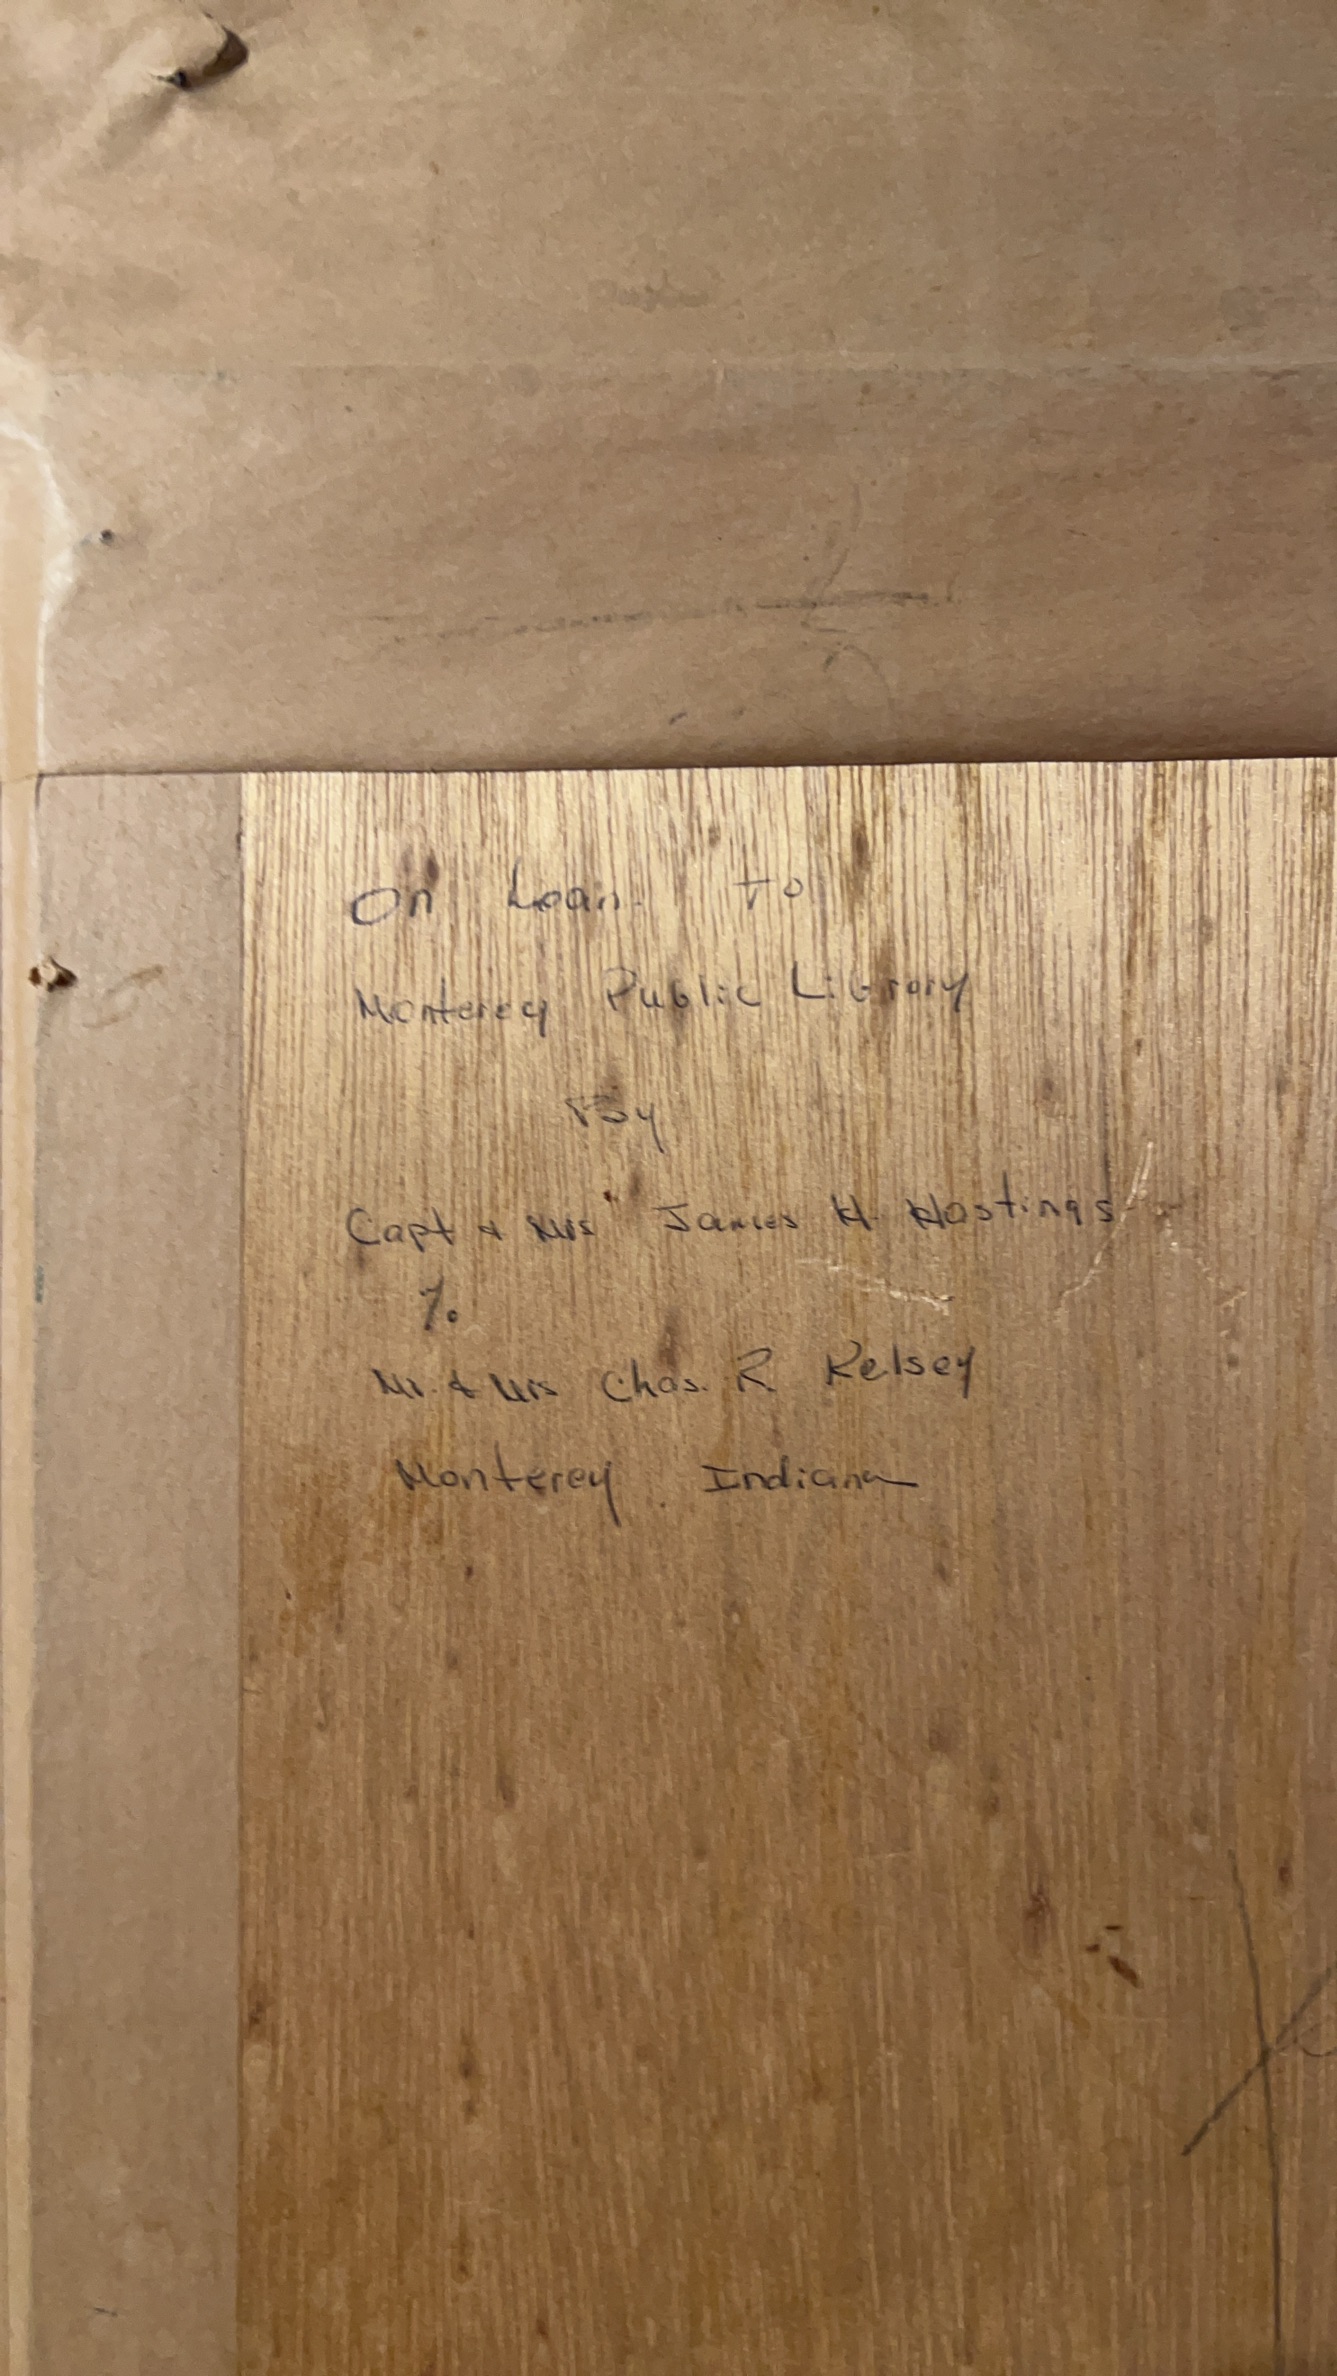 On Loan To
Monterey Public Library
By
Capt & Mrs James H. Hastings
%
Mr. & Mrs Chas. R. Kelsey
Monterey Indiana